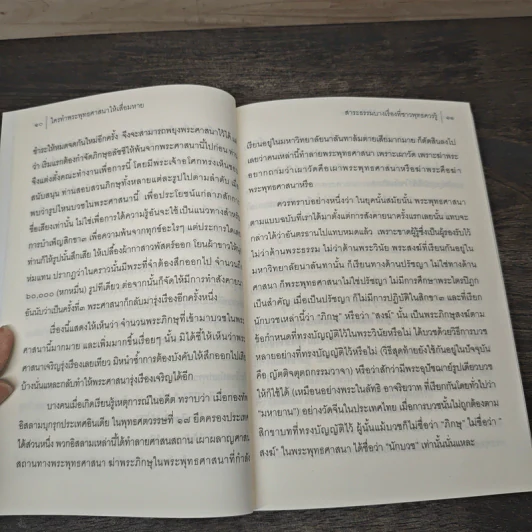 ๑๐ ใครทำพระพุทธศาสนาให้เสื่อมหาย
ชำระให้หมดจดกันใหม่อีกครั้ง จึงจะสามารถพยุงพระศาสนาไว้ได้ แ
ว่า เริ่มแรกต้องกำจัดภิกษุอลัชชีให้พ้นจากพระศาสนานี้ไปก่อน ท่าน
จึงแต่งตั้งคณะทำงานเพื่อการนี้ โดยมีพระเจ้าอโศกทรงเห็นชอบ
สนับสนุน ท่านสอบสวนภิกษุทั้งหลายแต่ละรูปไปตามลำดับ เมื่
พบว่ารูปไหนบวชในพระศาสนานี้ เพื่อประโยชน์แก่ลาภสักก
ชื่อเสียงเท่านั้น ไม่ใช่เพื่อการได้ความรู้อันจะใช้เป็นแนวทางสำหรั
การบำเพ็ญสิกขา๓ เพื่อความพ้นจากทุกข์อะไรๆ แต่ประการใดเล
ท่านก็ให้รูปนั้นสึกเสีย ให้เปลื้องผ้ากาสาวพัสตร์ออก โยนผ้าขาวให้
ห่มแทน ปรากฏว่าในคราวนั้นมีพระที่จำต้องสึกออกไป จำนวนถึ
๖๐,๐๐๐ (หกหมื่น) รูปทีเดียว ต่อจากนั้นก็จัดให้มีการทำสังคายน
อันนับว่าเป็นครั้งที่๓ พระศาสนาก็กลับมารุ่งเรืองอีกครั้งหนึ่ง
เรื่องนี้แสดงให้เห็นว่า จำนวนพระภิกษุที่เข้ามาบวชในพระ
ศาสนานี้มากมาย และเพิ่มมากขึ้นเรื่อยๆ นั้น มิได้ชี้ให้เห็นว่าพระ
ศาสนาเจริญรุ่งเรืองเลยเทียว มิหนำซ้ำการต้องบังคับให้สึกออกไปเสีย
บ้างนั่นแหละกลับทำให้พระศาสนารุ่งเรืองเจริญได้อีก
บางคนเมื่อเกิดเรียนรู้เหตุการณ์ในอดีต ทราบว่า เมื่อกองทัพ
อิสลามบุกรุกประเทศอินเดีย ในพุทธศตวรรษที่ ๑๗ ยึดครองประเทศ
ได้ส่วนหนึ่ง พวกอิสลามเหล่านี้ได้ทำลายศาสนสถาน เผาผลาญศาสน
สถานทางพระพุทธศาสนา ฆ่าพระภิกษุในพระพุทธศาสนาที่กำลัง
สาระธรรมบางเรื่องที่ชาวพุทธควรรู้ ๑๑
เรียนอยู่ในมหาวิทยาลัยนาลันทาล้มตายเสียมากมาย ก็ตัดสินลงไป
เลยว่าคนเหล่านี้ทำลายพระพุทธศาสนา เพราะเผาวัด เพราะฆ่าพระ
อยากถามว่าเผาวัดคือเผาพระพุทธศาสนาหรือฆ่าพระคือฆ่า
พระพุทธศาสนาหรือ
ควรทราบอย่างหนึ่งว่า ในยุคนั้นสมัยนั้น พระพุทธศาสนา
ตามแบบฉบับที่เราได้มาตั้งแต่การสังคายนาครั้งแรกเลยนั้น แทบจะ
กล่าวได้ว่าอันตรธานไปแทบหมดแล้ว เพราะขาดผู้ซึ่งเป็นผู้รองรับไว้
ไม่ว่าด้านพระธรรม ไม่ว่าด้านพระวินัย พระสงฆ์ที่เรียนกันอยู่ใน
มหาวิทยาลัยนาลันทานั้น ก็เรียนทางด้านปรัชญา ไม่ใช่ทางด้าน
ศาสนา ก็พระพุทธศาสนาไม่ใช่ปรัชญา ไม่มีการศึกษาพระไตรปิฎก
เป็นสำคัญ เมื่อเป็นปรัชญา ก็ไม่มีการปฏิบัติในสิกขา๓ และที่เรียก
นักบวชเหล่านี้ว่า “ภิกษุ” หรือว่า “สงฆ์” นั้น เป็นพระภิกษุสงฆ์ตาม
ข้อกำหนดที่ทรงบัญญัติไว้ในพระวินัยหรือไม่ ได้บวชด้วยวิธีการบวช
หลายอย่างที่ทรงบัญญัติไว้หรือไม่ (วิธีสุดท้ายยังใช้กันอยู่ในปัจจุบัน
คือ ญัตติจตุตถกรรมวาจา) หรือว่าสักว่ามีพระอุปัชฌาย์รูปเดียวบวช
ให้ก็ใช้ได้ (เหมือนอย่างพระในลัทธิ อาจริยวาท ที่เรียกกันโดยทั่วไปว่า
“มหายาน”) อย่างวัดจีนในประเทศไทย เมื่อการบวชนั้นไม่ถูกต้องตาม
สิกขาบทที่ทรงบัญญัติไว้ ผู้นั้นแม้บวชก็ไม่ชื่อว่า “ภิกษุ” ไม่ชื่อว่า “
สงฆ์” ในพระพุทธศาสนา ได้ชื่อว่า “นักบวช” เท่านั้นนั่นแหละ